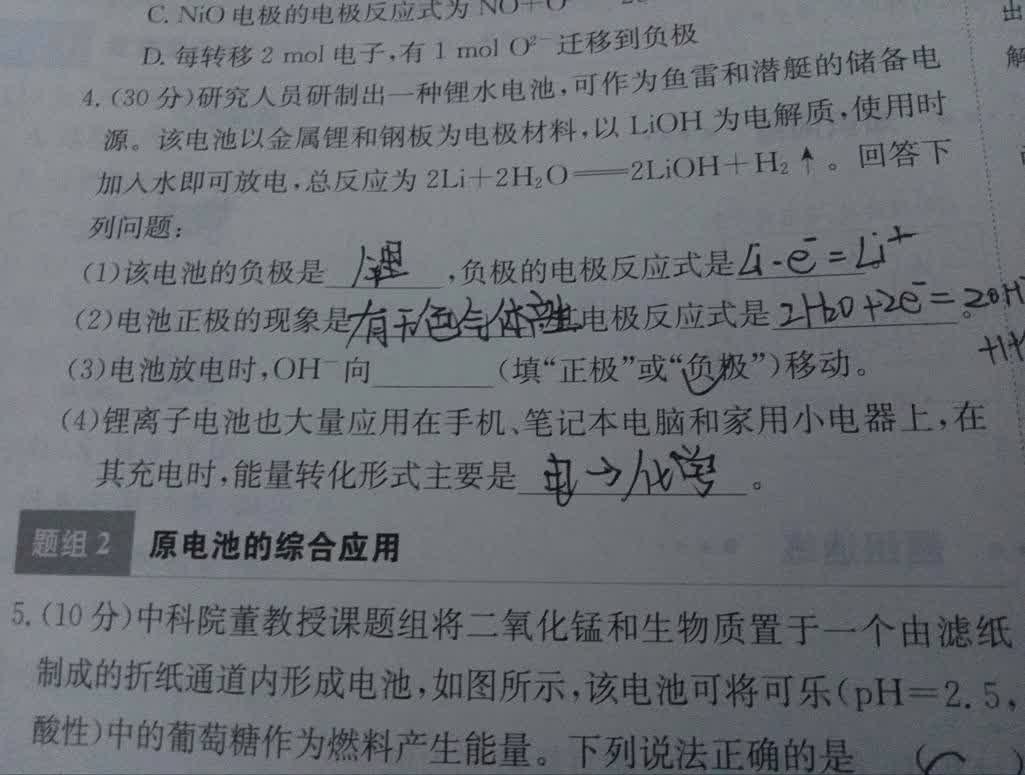 C. NiO 电极的电极反应式为 NO+O
D. 每转移 2 mol 电子,有 1 mol O²⁻ 迁移到负极
4. (30 分)研究人员研制出一种锂水电池,可作为鱼雷和潜艇的储备电
源。该电池以金属锂和钢板为电极材料,以 LiOH 为电解质,使用时
加入水即可放电,总反应为 2Li+2H₂O══2LiOH+H₂↑。回答下
列问题:
(1)该电池的负极是 锂 ,负极的电极反应式是 Li-e⁻=Li⁺
(2)电池正极的现象是有无色气体产生电极反应式是 2H2O+2e⁻=2OH 。
(3)电池放电时,OH⁻向________(填“正极”或“负极”)移动。
(4)锂离子电池也大量应用在手机、笔记本电脑和家用小电器上,在
其充电时,能量转化形式主要是 电→化学 。
题组 2 原电池的综合应用
5. (10 分)中科院董教授课题组将二氧化锰和生物质置于一个由滤纸
制成的折纸通道内形成电池,如图所示,该电池可将可乐(pH=2.5,
酸性)中的葡萄糖作为燃料产生能量。下列说法正确的是 ( C )
出
解